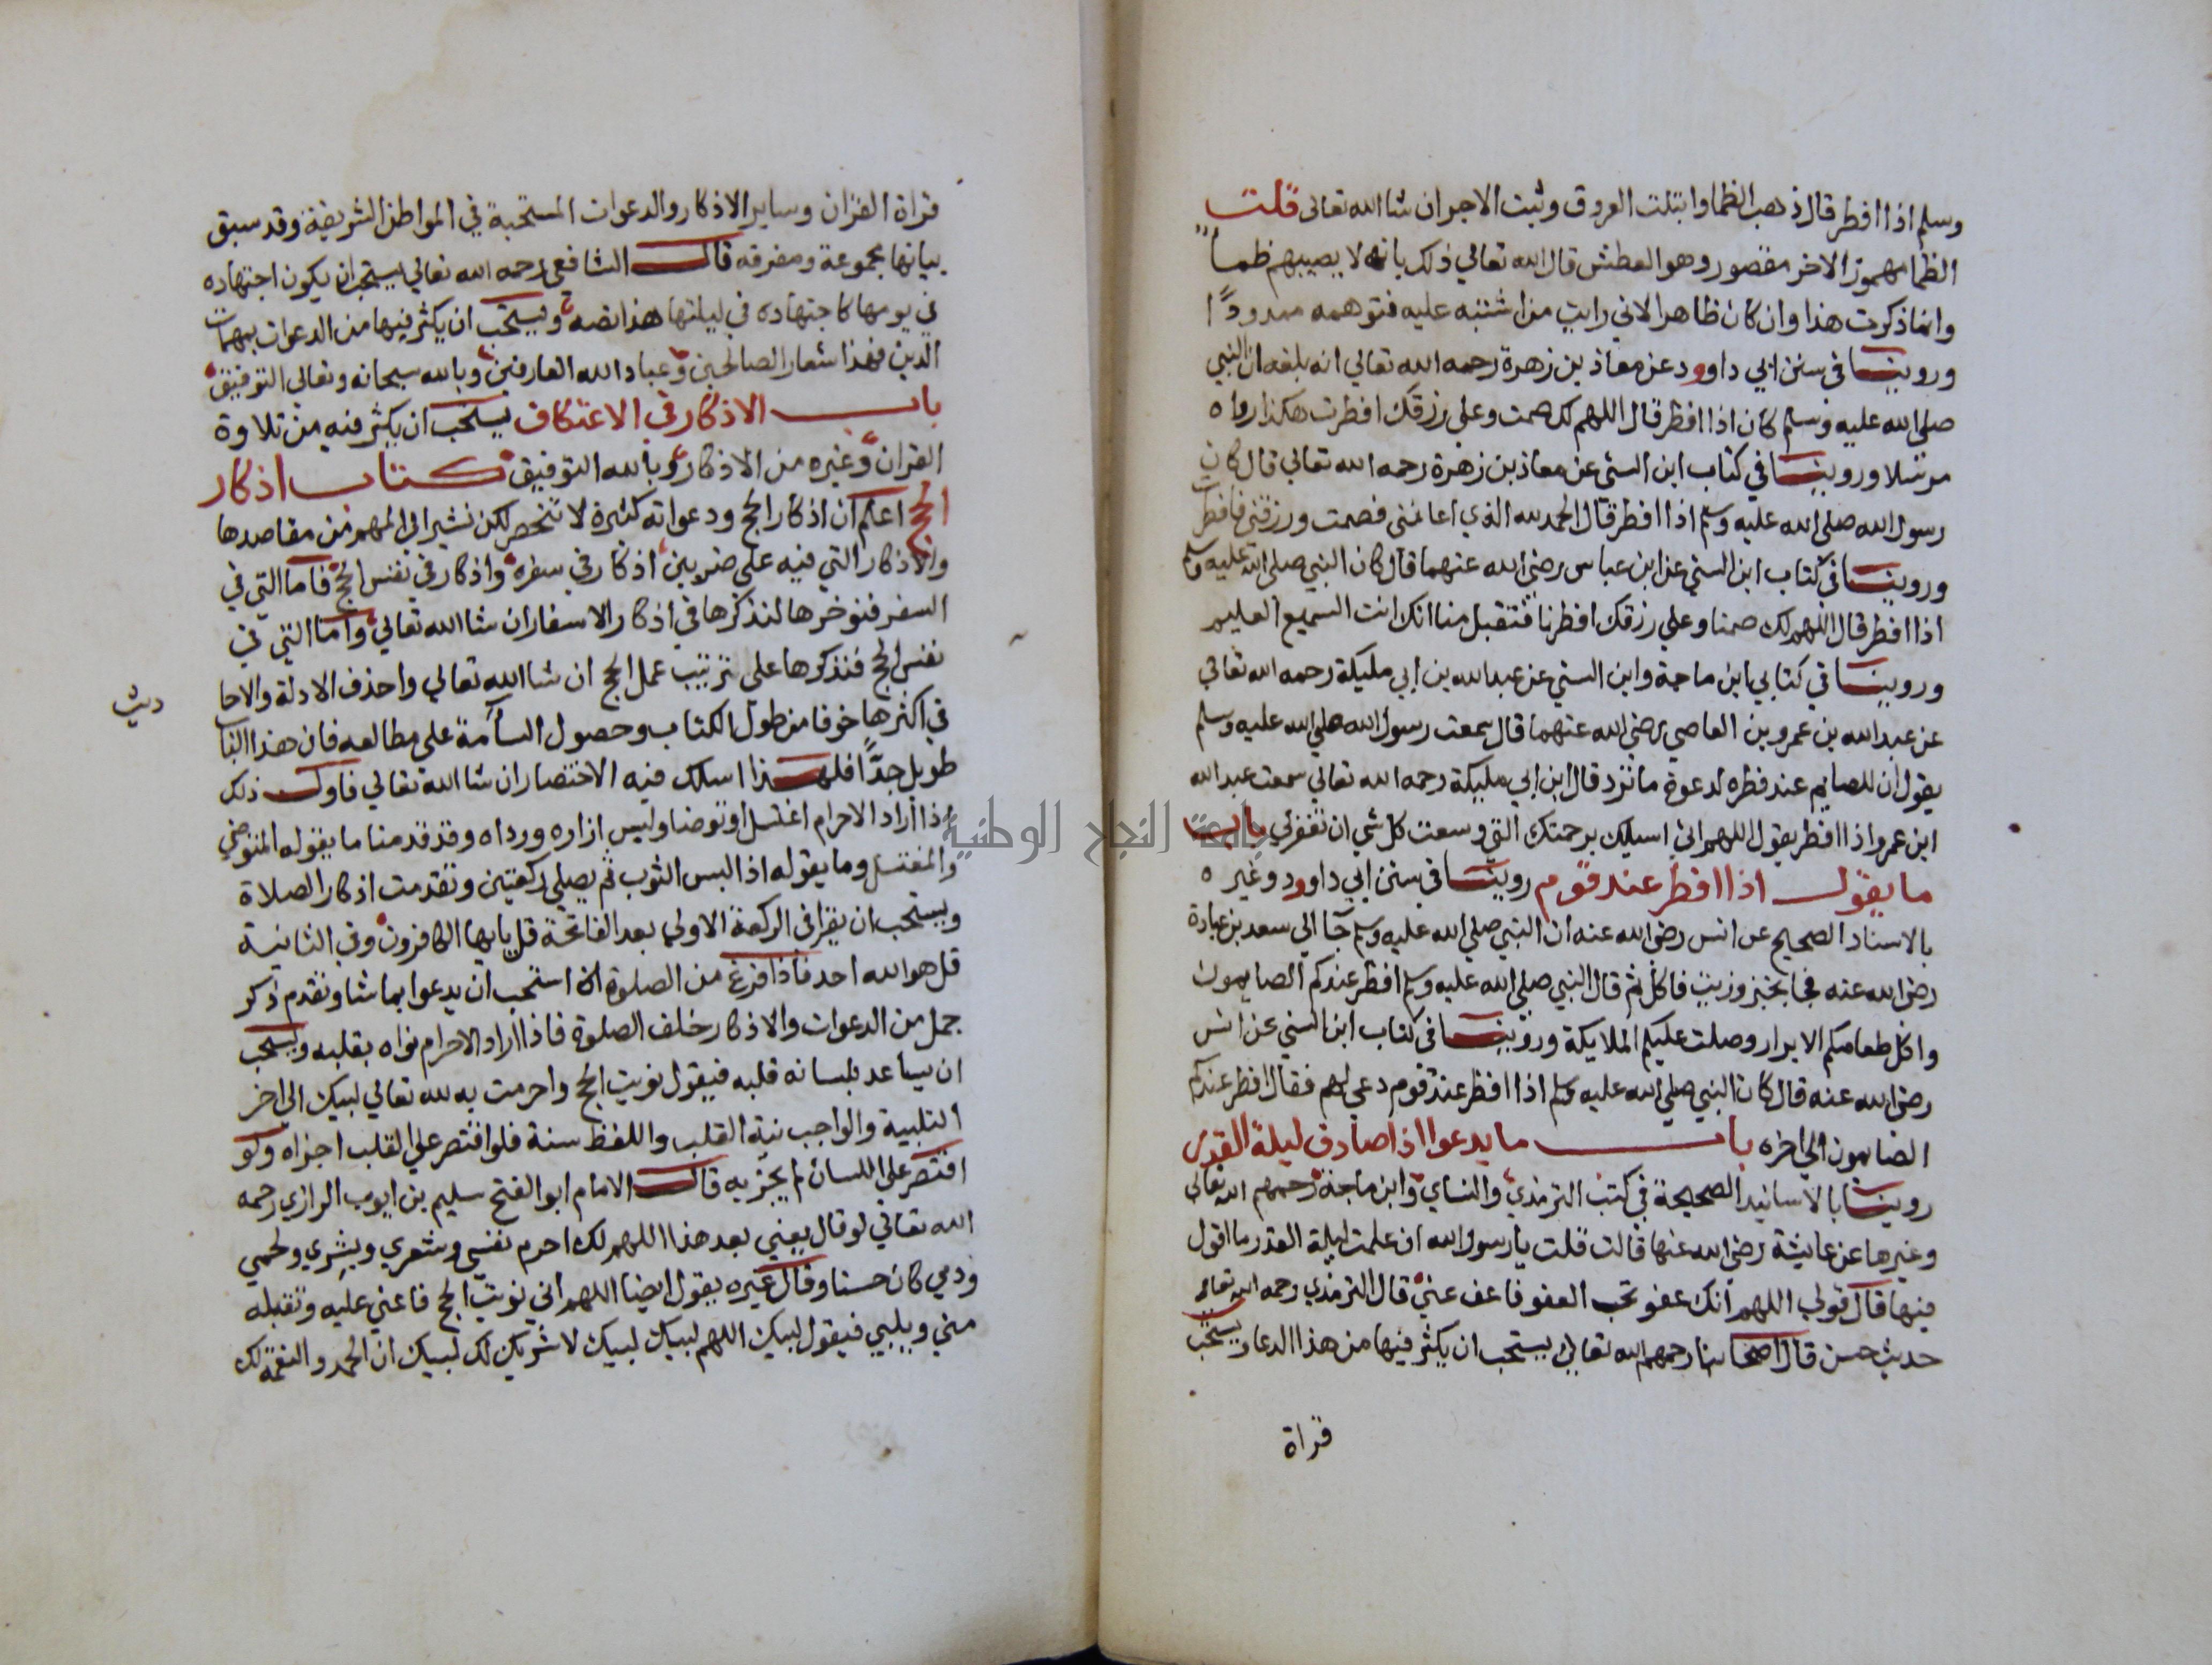 وسلم اذا افطر قال ذهب الظما وابتلت العروق وثبت الاجر ان شا الله تعالى قلت
الظما مهموز الاخر مقصور وهو العطش قال الله تعالي ذلك بانهم لا يصيبهم ظمأ
وانما ذكرت هذا وان كان ظاهرا لاني رايت من اشتبه عليه فتوهمه ممدودًا
وروينا في سنن ابي داوود عن معاذ بن زهرة رحمه الله تعالي انه بلغه ان النبي
صلي الله عليه وسلم كان اذا افطر قال اللهم لك صمت وعلي رزقك افطرت هكذا رواه
مرسلا وروينا في كتاب ابن السني عن معاذ بن زهرة رحمه الله تعالي قال كان
رسول الله صلي الله عليه وسلم اذا افطر قال الحمد لله الذي اعانني فصمت ورزقني فافطرت
وروينا في كتاب ابن السني عن ابن عباس رضي الله عنهما قال كان النبي صلي الله عليه وسلم
اذا افطر قال اللهم لك صمنا وعلي رزقك افطرنا فتقبل منا انك انت السميع العليم
وروينا في كتابي ابن ماجة وابن السني عن عبد الله بن ابي مليكة رحمه الله تعالي
عن عبد الله بن عمرو بن العاصي رضي الله عنهما قال سمعت رسول الله صلي الله عليه وسلم
يقول ان للصايم عند فطره لدعوة ما ترد قال ابن ابي مليكة رحمه الله تعالي سمعت عبد الله
ابن عمرو اذا افطر يقول اللهم اني اسيلك برحمتك التي وسعت كل شي ان تغفر لي باب
ما يقول اذا افطر عند قوم روينا في سنن ابي داوود وغيره
بالاسناد الصحيح عن انس رضي الله عنه ان النبي صلي الله عليه وسلم جآ الي سعد بن عبادة
رضي الله عنه فجا بخبز وزيت فاكل ثم قال النبي صلي الله عليه وسلم افطر عندكم الصايمون
واكل طعامكم الابرار وصلت عليكم الملايكة وروينا في كتاب ابن السني عن انس
رضي الله عنه قال كان النبي صلي الله عليه وسلم اذا افطر عند قوم دعي لهم فقال افطر عندكم
الصايمون الي اخره باب ما يدعوا اذا صادف ليلة القدر
روينا بالاسانيد الصحيحة في كتب الترمذي والنساي وابن ماجة رحمهم الله تعالي
وغيرها عن عايشة رضي الله عنها قالت قلت يا رسول الله ان علمت ليلة القدر ما اقول
فيها قال قولي اللهم انك عفو تحب العفو فاعف عني قال الترمذي رحمه الله تعالي
حديث حسن قال اصحابنا رحمهم الله تعالي يستحب ان يكثر فيها من هذا الدعا ويستحب
قراة
قراة القران وساير الاذكار والدعوات المستحبة في المواطن الشريفة وقد سبق
بيانها مجموعة ومفرقه قال الشافعي رحمه الله تعالي يستحب ان يكون اجتهاده
في يومها كاجتهاده في ليلتها هذا نصه ويستحب ان يكثر فيها من الدعوات بمهمات
الدين فهذا شعار الصالحين وعباد الله العارفين وبالله سبحانه وتعالي التوفيق
باب الاذكار في الاعتكاف يستحب ان يكثر فيه من تلاوة
القران وغيره من الاذكار وبالله التوفيق كتاب اذكار
الحج اعلم ان اذكار الحج ودعواته كثيرة لا تنحصر لكن نشير الي المهم من مقاصدها
والاذكار التي فيه علي ضربين اذكار في سفره واذكار في نفس الحج فاما التي في
السفر فنوخرها لنذكرها في اذكار الاسفار ان شا الله تعالي واما التي في
نفس الحج فنذكرها علي ترتيب عمل الحج ان شا الله تعالي واحذف الادلة والاحا
ديث
في اكثرها خوفا من طول الكتاب وحصول السآمة علي مطالعه فان هذا الباب
طويل جدًّا فلهذا اسلك فيه الاختصار ان شا الله تعالي فاول ذلك
اذا اراد الاحرام اغتسل او توضا ولبس ازاره ورداه وقد قدمنا ما يقوله المتوضي
والمغتسل وما يقوله اذا لبس الثوب ثم يصلي ركعتين وتقدمت اذكار الصلاة
ويستحب ان يقرا في الركعة الاولي بعد الفاتحة قل يايها الكافرون وفي الثانية
قل هو الله احد فاذا فرغ من الصلوة استحب ان يدعوا بما شا وتقدم ذكر
جمل من الدعوات والاذكار خلف الصلوة فاذا اراد الاحرام نواه بقلبه ويستحب
ان يساعد بلسانه قلبه فيقول نويت الحج واحرمت به لله تعالي لبيك الي اخر
التلبية والواجب نية القلب واللفظ سنة فلو اقتصر علي القلب اجزاه ولو
اقتصر علي اللسان لم يجزيه قال الامام ابو الفتح سليم بن ايوب الرازي رحمه
الله تعالي لو قال يعني بعد هذا اللهم لك احرم نفسي وشعري وبشري ولحمي
ودمي كان حسنا وقال غيره يقول ايضا اللهم اني نويت الحج فاعني عليه وتقبله
مني ويلبي فيقول لبيك اللهم لبيك لبيك لا شريك لك لبيك ان الحمد والنعمة لك
جامعة النجاح الوطنية